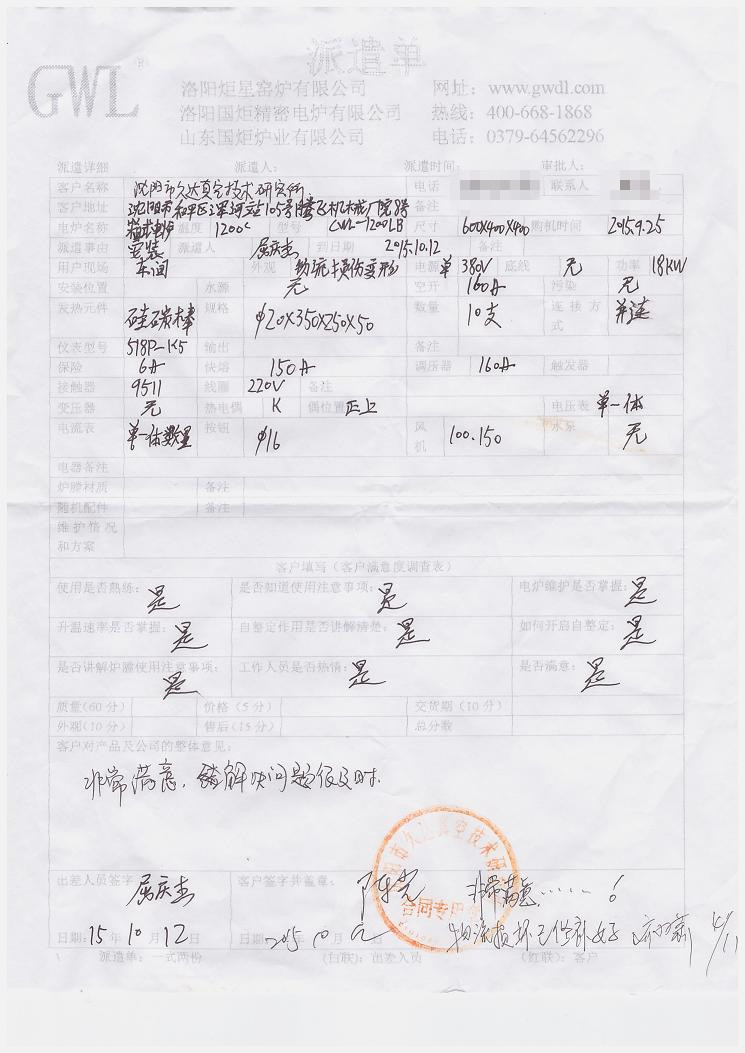 派遣单
GWL®
洛阳炬星窑炉有限公司 网址：www.gwdl.com
洛阳国炬精密电炉有限公司 热线：400-668-1868
山东国炬炉业有限公司 电话：0379-64562296
派遣详细 派遣人： 派遣时间： 审批人：
客户名称 沈阳市久达真空技术研究所 电话 联系人
客户地址 沈阳市和平区浑河站105号 飞机械厂院 备注
电炉名称 箱式电炉 温度 1200℃ 型号 GWL-1200LB 尺寸 600X400X400 购机时间 2015.9.25
派遣事由 安装 派遣人 屈庆杰 到日期 2015.10.12 备注
用户现场 车间 外观 物流损伤变形 电源 单 380V 底线 无 功率 18KW
安装位置 水源 无 空开 160A 污染 无
发热元件 硅碳棒 规格 φ20X350X250X50 数量 10支 连接方式 并连
仪表型号 518P-K5 输出 备注
保险 6A 快熔 150A 调压器 160A 触发器
接触器 9511 线圈 220V 备注
变压器 无 热电偶 K 偶位置 正上 电压表 单一体
电流表 单一体数量 按钮 φ16 风机 100.150 水泵 无
电器备注
炉膛材质 备注
随机配件 备注
维护情况和方案
客户填写（客户满意度调查表）
使用是否熟练： 是 是否知道使用注意事项： 是 电炉维护是否掌握： 是
升温速率是否掌握： 是 自整定作用是否讲解清楚： 是 如何开启自整定： 是
是否讲解炉膛使用注意事项： 是 工作人员是否热情： 是 是否满意： 是
质量(60分) 价格(5分) 交货期(10分)
外观(10分) 售后(15分) 总分数
客户对产品及公司的整体意见：
非常满意，解决问题很及时.
出差人员签字 屈庆杰 客户签字共盖章： 陈光 非常满意……！
阳市久达真空技术研
合同专用章
日期：15年10月12 日期：2015 10 物流损坏已修补好
派遣单：一式两份 (白联)：出差人员 (红联)：客户